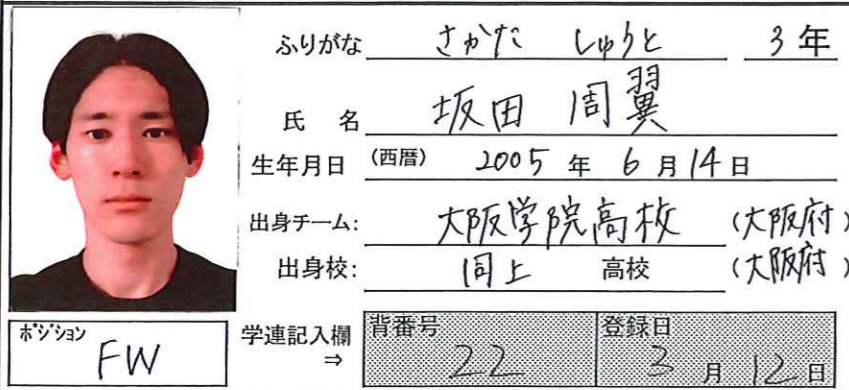 ふりがな さかた しゅうと 3年
氏 名 坂田 周翼
生年月日 (西暦) 2005 年 6 月 14 日
出身チーム: 大阪学院高校 (大阪府)
出身校: 同上 高校 (大阪府)
ポジション FW
学連記入欄 ⇒
背番号 22
登録日 3 月 12 日